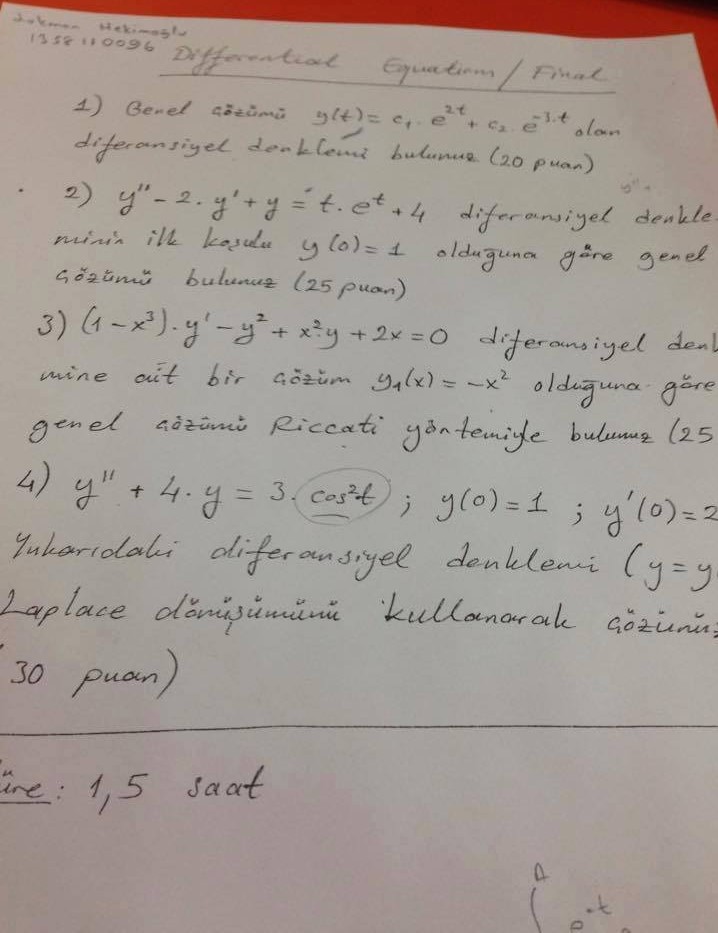 Lokman Hekimoglu
1358110096
Differential Equations / Final
1) Genel çözümü y(t) = c₁. e^2t + c₂. e^-3.t olan
diferansiyel denklemi bulunuz (20 puan)
2) y'' - 2. y' + y = t. e^t + 4 diferansiyel denkle
minin ilk koşulu y(0) = 1 olduğuna göre genel
çözümü bulunuz (25 puan)
3) (1 - x³). y' - y² + x².y + 2x = 0 diferansiyel denk
mine ait bir çözüm y₁(x) = -x² olduğuna göre
genel çözümü Riccati yöntemiyle bulunuz (25
4) y'' + 4. y = 3. cos²t ; y(0) = 1 ; y'(0) = 2
Yukarıdaki diferansiyel denklemi (y = y
Laplace dönüşümünü kullanarak çözünüz
30 puan)
üre : 1,5 saat